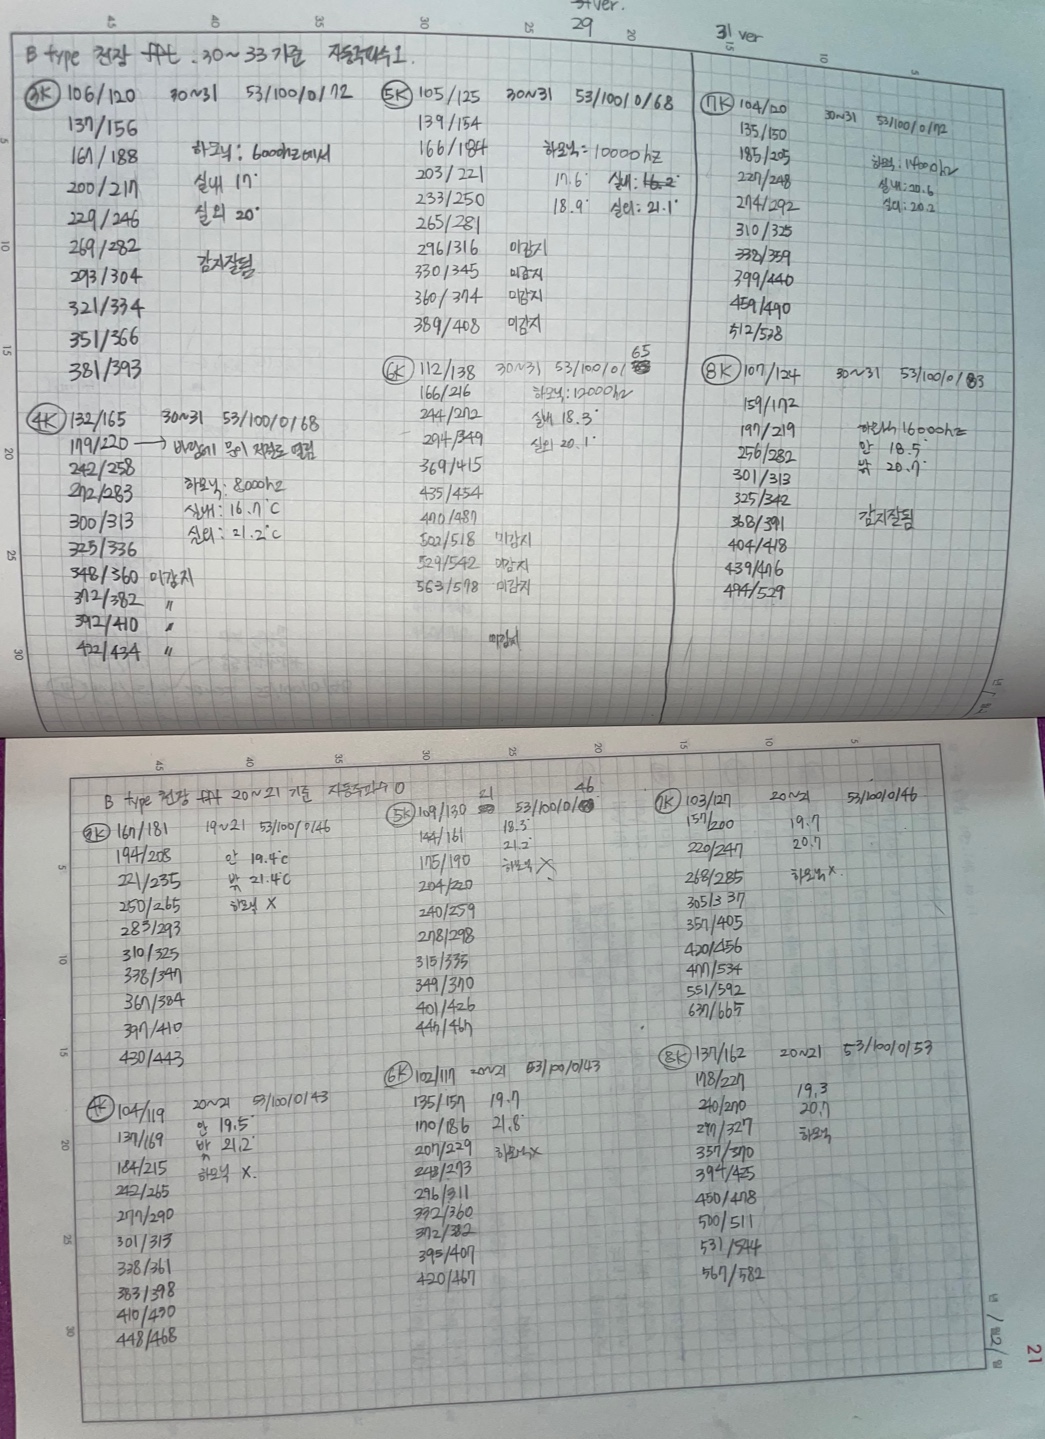 31ver.
29
31 ver
B type 천장 fft : 30~33기준 자동주파수 1.
3K 106/120 30~31 53/100/0/72
137/156
167/188 하모닉: 6000hz에서
200/217 실내 17°
229/246 실외 20°
269/282
293/304 감지잘됨
321/334
351/366
381/393
4K 132/165 30~31 53/100/0/68
179/220 → 바람에 문이 저절로 열림
242/258
272/283 하모닉: 8000hz
300/313 실내: 16.7°C
325/336 실외: 21.2°C
348/360 미감지
372/382 "
392/410 "
422/434 "
5K 105/125 30~31 53/100/0/68
139/154
166/184 하모닉= 10000hz
203/221 17.6° 실내: 16.2°
233/250 18.9° 실외: 21.1°
265/281
296/316 미감지
330/345 미감지
360/374 미감지
389/408 미감지
6K 112/138 30~31 53/100/0/65
166/216 하모닉: 12000hz
244/272 실내 18.3°
294/349 실외 20.1°
369/415
435/454
470/487
502/518 미감지
529/542 미감지
563/578 미감지
미감지
7K 104/120 30~31 53/100/0/72
135/150
185/205 하모닉: 14000hz
227/248 실내: 20.6
274/292 실외: 20.2
310/325
332/359
399/440
459/490
512/538
8K 107/124 30~31 53/100/0/83
159/172
197/219 하모닉 16000hz
256/282 안 18.5°
301/313 밖 20.7°
325/342
368/391 감지잘됨
404/418
439/476
494/529
B type 천장 fft 20~21 기준 자동주파수 0
3K 167/181 19~21 53/100/0/46
194/208 안 19.4°C
221/235 밖 21.4°C
250/265 하모닉 X
283/293
310/325
338/347
367/384
397/410
430/443
4K 104/119 20~21 53/100/0/43
137/169 안 19.5°
184/215 밖 21.2°
242/265 하모닉 X.
277/290
301/313
338/361
383/398
410/430
448/468
5K 109/130 21 53/100/0/46
144/161 18.3°
175/190 21.2°
204/220 하모닉 X
240/259
278/298
315/335
349/370
401/426
447/467
6K 102/117 20~21 53/100/0/43
135/157 19.7
170/186 21.8°
207/229 하모닉x
248/273
296/311
332/360
372/382
395/407
420/467
7K 103/127 20~21 53/100/0/46
157/200 19.7
220/247 20.7
268/285 하모닉x.
305/337
357/405
420/456
477/534
551/592
637/665
8K 137/162 20~21 53/100/0/53
178/227 19.3
240/270 20.7
297/327 하모닉
357/370
394/425
450/478
500/511
531/544
567/582
21